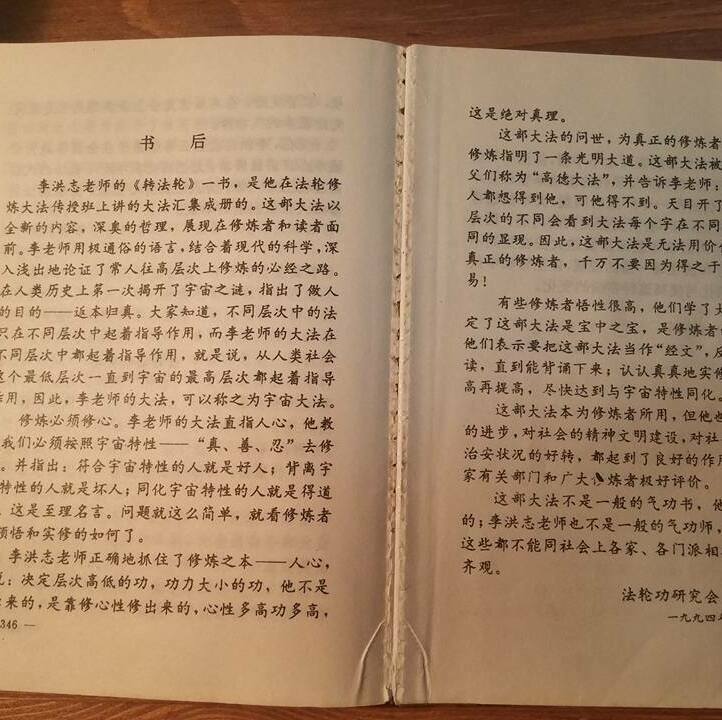 书 后
李洪志老师的《转法轮》一书，是他在法轮修
炼大法传授班上讲的大法汇集成册的。这部大法以
全新的内容，深奥的哲理，展现在修炼者和读者面
前。李老师用极通俗的语言，结合着现代的科学，深
入浅出地论证了常人往高层次上修炼的必经之路。
在人类历史上第一次揭开了宇宙之谜，指出了做人
的目的——返本归真。大家知道，不同层次中的法
只在不同层次中起着指导作用，而李老师的大法在
不同层次中都起着指导作用，就是说，从人类社会
这个最低层次一直到宇宙的最高层次都起着指导
作用，因此，李老师的大法，可以称之为宇宙大法。
修炼必须修心。李老师的大法直指人心，他教
我们必须按照宇宙特性——“真、善、忍”去修
。并指出：符合宇宙特性的人就是好人；背离宇
特性的人就是坏人；同化宇宙特性的人就是得道
。这是至理名言。问题就这么简单，就看修炼者
领悟和实修的如何了。
李洪志老师正确地抓住了修炼之本——人心，
说：决定层次高低的功，功力大小的功，他不是
来的，是靠修心性修出来的，心性多高功多高，
346 —
这是绝对真理。
这部大法的问世，为真正的修炼者
修炼指明了一条光明大道。这部大法被
父们称为“高德大法”，并告诉李老师：
人都想得到他，可他得不到。天目开了
层次的不同会看到大法每个字在不同
同的显现。因此，这部大法是无法用价
真正的修炼者，千万不要因为得之于
易！
有些修炼者悟性很高，他们学了大
定了这部大法是宝中之宝，是修炼者
他们表示要把这部大法当作“经文”，反
读，直到能背诵下来；认认真真地实修
高再提高，尽快达到与宇宙特性同化。
这部大法本为修炼者所用，但他也
的进步，对社会的精神文明建设，对社
治安状况的好转，都起到了良好的作用
家有关部门和广大修炼者极好评价。
这部大法不是一般的气功书，他
的；李洪志老师也不是一般的气功师，
这些都不能同社会上各家、各门派相
齐观。
法轮功研究会
一九九四年